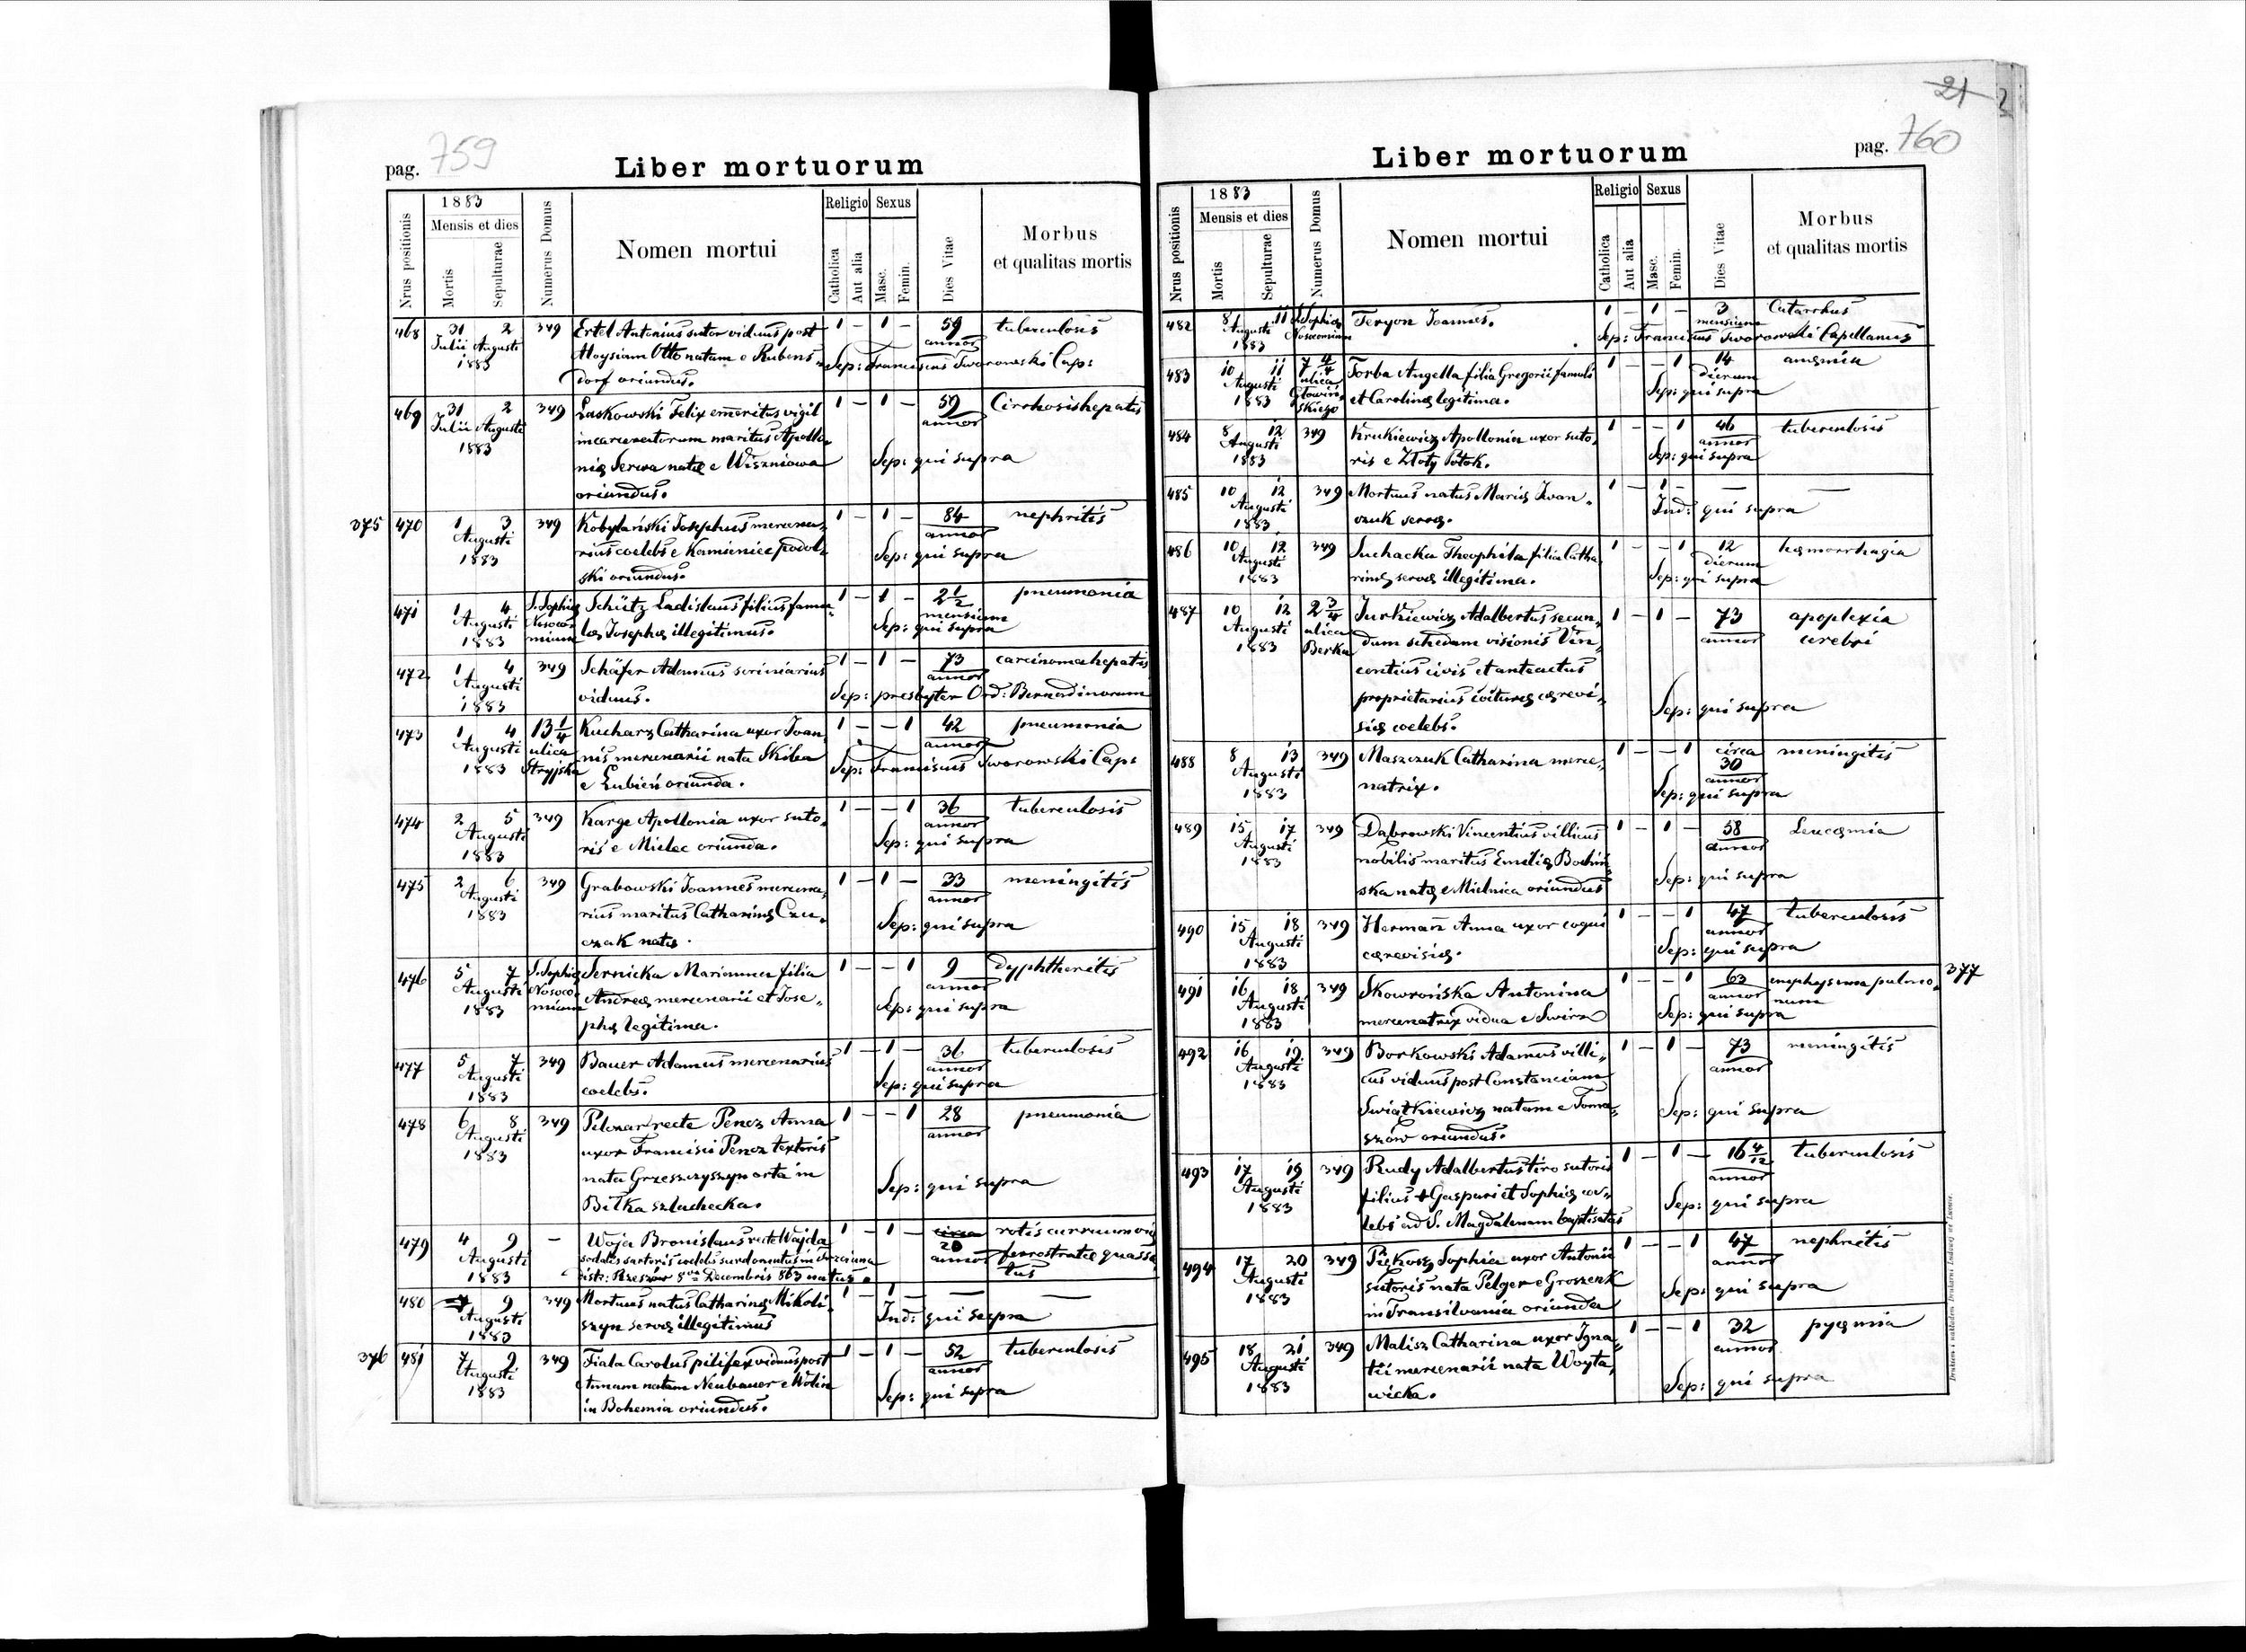 pag. 759
Liber mortuorum
Nrus positionis
1883
Mensis et dies
Mortis
Sepulturae
Numerus Domus
Nomen mortui
Religio
Catholica
Aut alia
Sexus
Masc.
Femin.
Dies Vitae
Morbus
et qualitas mortis
468 31 2 349 Ertel Antonius sutor viduus post 1 - 1 - 59 tuberculosis
Julii Augusti Aloysiam Otto natam e Rubens annor
1883 dorf oriundus. Sep: Franciscus Tworowski Cap:
469 31 2 349 Laskowski Felix emeritus vigil 1 - 1 - 59 Cirrhosis hepatis
Julii Augusti incarceratorum maritus Apollo, annor
1883 nię Serwa natę e Wiszniowa Sep: qui supra
oriundus.
375 470 1 3 349 Kobylański Josephus mercena, 1 - 1 - 84 nephritis
Augusti rius coelebs e Kamieniec podol, annor
1883 ski oriundus. Sep: qui supra
471 1 4 S. Sophię Schütz Ladislaus filius famu, 1 - 1 - 2½ pneumonia
Augusti Nosoco lę Josephę illegitimus. mensium
1883 mium Sep: qui supra
472 1 4 349 Schäfer Adamus scriniarius 1 - 1 - 73 carcinoma hepatis
Augusti viduus. annor
1883 Sep: presbyter Ord: Bernardinorum
473 1 4 13¼ Kucharz Catharina uxor Joan 1 - - 1 42 pneumonia
Augusti ulica nis mercenarii nata Skiba annor
1883 Stryjska e Lubień oriunda. Sep: Franciscus Tworowski Cap:
474 2 5 349 Karge Apollonia uxor suto, 1 - - 1 36 tuberculosis
Augusti ris e Mielec oriunda. annor
1883 Sep: qui supra
475 2 6 349 Grabowski Joannes mercena, 1 - 1 - 33 meningitis
Augusti rius maritus Catharinę Czu, annor
1883 czak natę. Sep: qui supra
476 5 7 S. Sophię Sernicka Marianna filia 1 - - 1 9 dyphtheritis
Augusti Nosoco Andreę mercenarii et Jose, annor
1883 mium phę legitima. Sep: qui supra
477 5 7 349 Bauer Adamus mercenarius 1 - 1 - 36 tuberculosis
Augusti coelebs. annor
1883 Sep: qui supra
478 6 8 349 recte Pencz Anna 1 - - 1 28 pneumonia
Augusti uxor Francisci Pencz textoris annor
1883 nata Grzeszczyszyn orta in
Biłka szlachecka. Sep: qui supra
479 4 9 - Woja Bronislaus recte Wajda 1 - 1 - circa rotis curruum vię
Augusti sodalis sartoris coelebs surdomutus in 20 ferrostratę quassa
1883 distr: Rzeszów 8va Decembris 863 natus. annor tus
480 9 349 Mortuus natus Catharinę Mikoli, 1 - 1 - — —
Augusti szyn servę illegitimus Ind: qui supra
1883
376 481 7 9 349 Fiala Carolus pilifex viduus post 1 - 1 - 52 tuberculosis
Augusti Annam natam Neubauer e Wolin annor
1883 in Bohemia oriundus. Sep: qui supra
21
pag. 760
Liber mortuorum
Nrus positionis
1883
Mensis et dies
Mortis
Sepulturae
Numerus Domus
Nomen mortui
Religio
Catholica
Aut alia
Sexus
Masc.
Femin.
Dies Vitae
Morbus
et qualitas mortis
482 8 11 S. Sophię Feryon Joannes. 1 - 1 - 3 Catarrhus
Augusti Nosocomium mensium
1883 Sep: Franciscus Tworowski Capellanus
483 10 11 7 4/4 Torba Angella filia Gregorii famuli 1 - - 1 14 anęmia
Augusti ulica et Carolinę legitima. dierum
1883 Głowiń, skiego Sep: qui supra
484 8 12 349 Krukiewicz Apollonia uxor suto, 1 - - 1 46 tuberculosis
Augusti ris e Złoty Potok. annor
1883 Sep: qui supra
485 10 12 349 Mortuus natus Marię Iwan, 1 - 1 - — —
Augusti czuk servę. Ind: qui supra
1883
486 10 12 349 Suchacka Theophila filia Catha, 1 - - 1 12 hęmorrhagia
Augusti rinę servę illegitima. dierum
1883 Sep: qui supra
487 10 12 2¾ Jurkiewicz Adalbertus secun, 1 - 1 - 73 apoplexia
Augusti ulica dum schedam visionis Vin, annor cerebri
1883 Berka centius civis et anteactus
proprietarius coiturę cęrevi,
się coelebs. Sep: qui supra
488 8 13 349 Maszczuk Catharina merce, 1 - - 1 circa meningitis
Augusti natrix. 30
1883 annor
Sep: qui supra
489 15 17 349 Dąbrowski Vincentius villicus 1 - 1 - 58 Leucęmia
Augusti nobilis maritus Emilię Bochiń annor
1883 ska natę e Mielnica oriundus Sep: qui supra
490 15 18 349 Herman Anna uxor coqui 1 - - 1 47 tuberculosis
Augusti cęrevisię. annor
1883 Sep: qui supra
491 16 18 349 Skowrońska Antonina 1 - - 1 63 emphysema pulmo, 377
Augusti mercenatrix vidua e Swirz annor num
1883 Sep: qui supra
492 16 19 349 Borkowski Adamus villi, 1 - 1 - 73 meningitis
Augusti cus viduus post Constanciam annor
1883 Swiątkiewicz natam e Toma,
szów oriundus. Sep: qui supra
493 17 19 349 Rudy Adalbertus tiro sutoris 1 - 1 - 16 4/12 tuberculosis
Augusti filius Gaspari et Sophię coe, annor
1883 lebs ad S. Magdalenam baptisatus Sep: qui supra
494 17 20 349 Piękosz Sophia uxor Antonii 1 - - 1 47 nephritis
Augusti sutoris nata Pelger e Groszenk annor
1883 in Transilvania oriunda Sep: qui supra
495 18 21 349 Malisz Catharina uxor Igna, 1 - - 1 32 pyęmia
Augusti tii mercenarii nata Woyta, annor
1883 wicka. Sep: qui supra